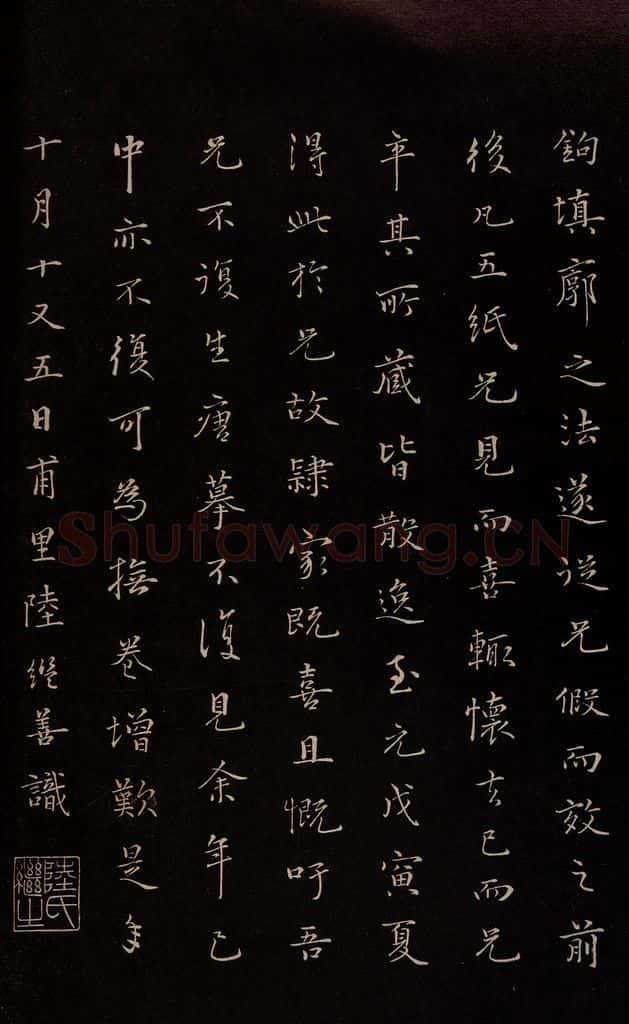 鉤填廓之法遂從兄假而效之前
後凡五紙兄見而喜輒懷去已而兄
卒其所藏皆散逸至元戊寅夏
得此於兄故隸家既喜且慨吁吾
兄不復生唐摹不復見余年已
中亦不復可為撫卷增歎是年
十月十又五日甫里陸繼善識
陸氏繼之
Shufawang.CN